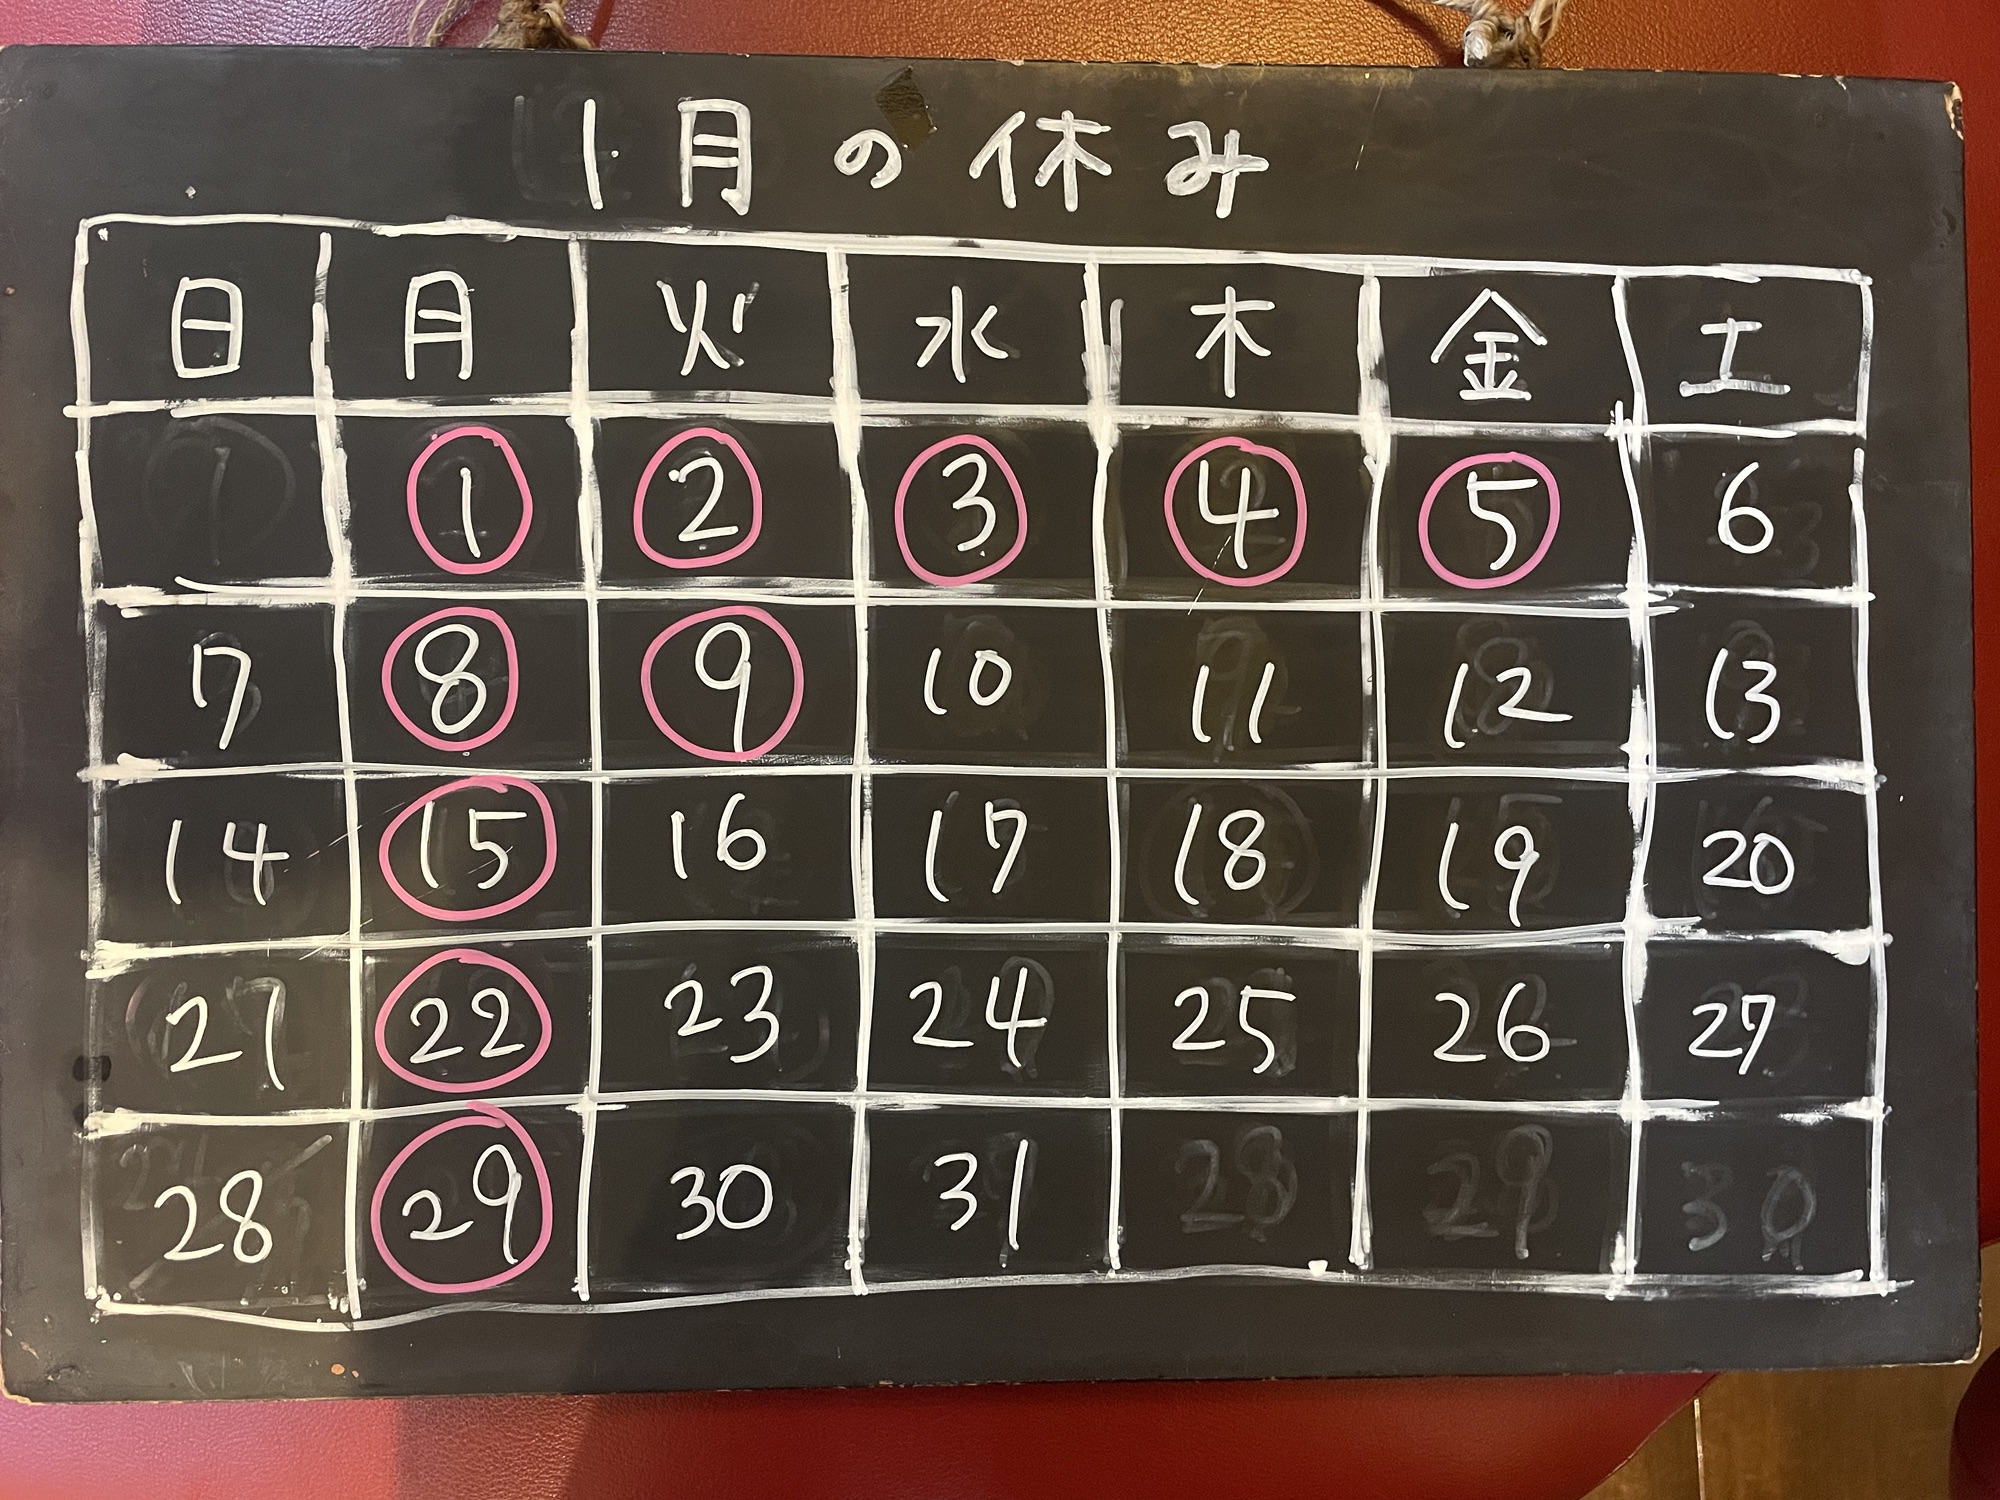 1月の休み
日 月 火 水 木 金 土
1 2 3 4 5 6
7 8 9 10 11 12 13
14 15 16 17 18 19 20
21 22 23 24 25 26 27
28 29 30 31